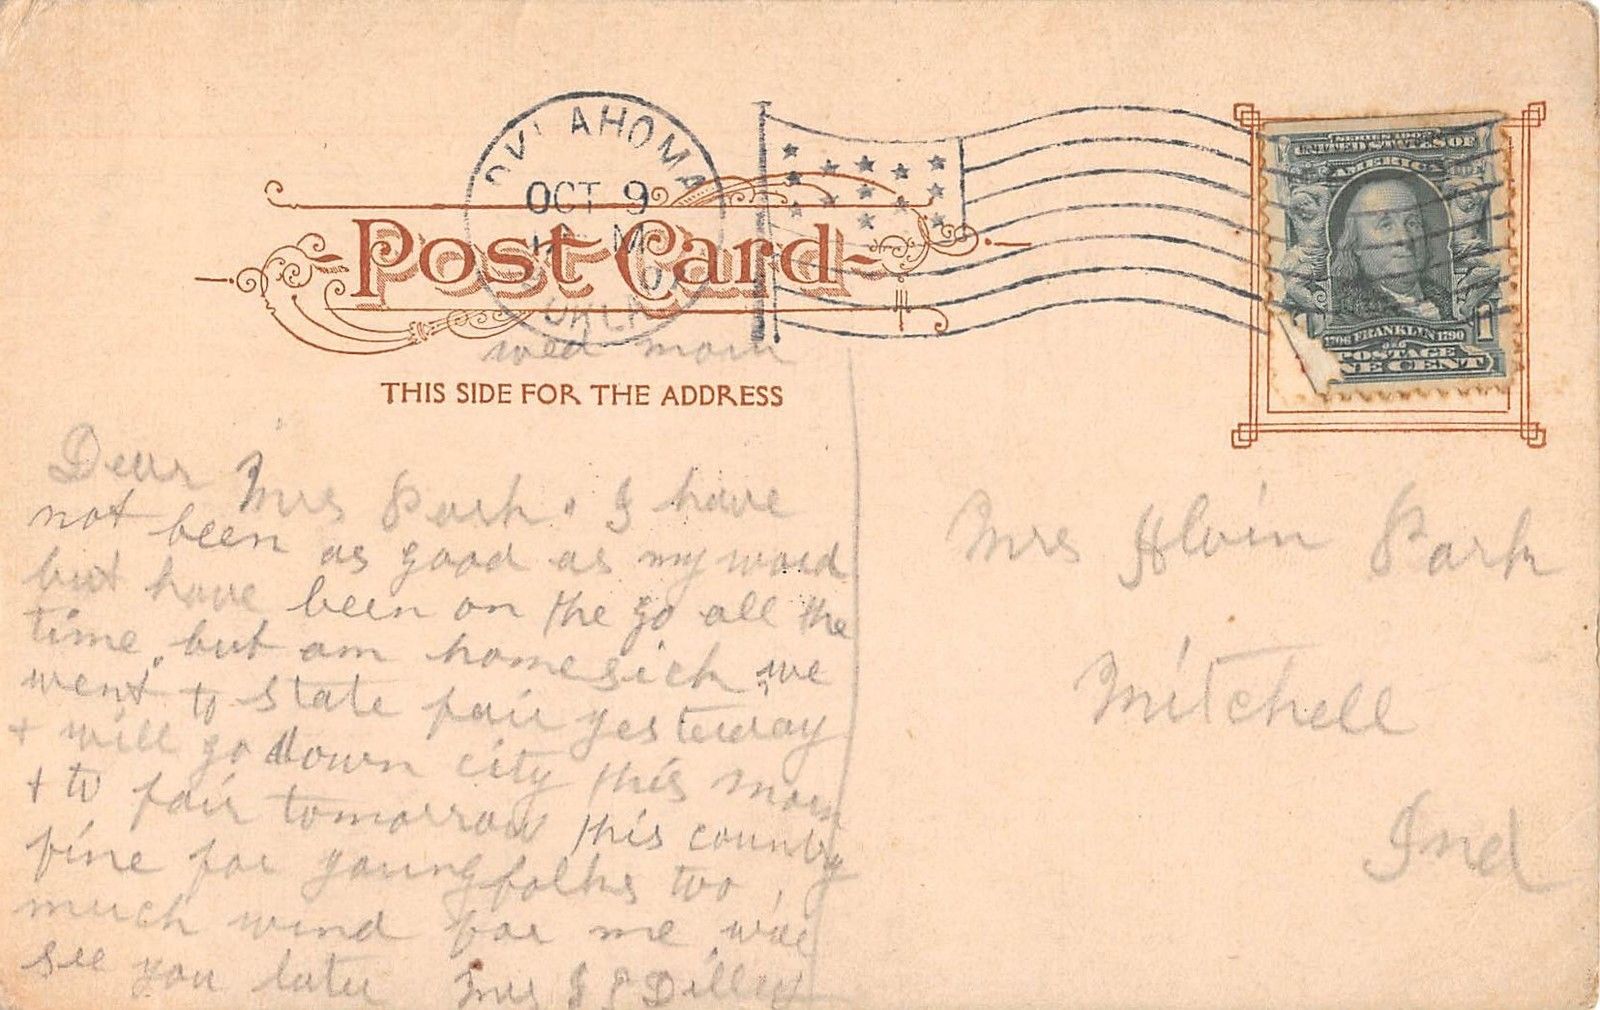 OKLAHOMA
OCT 9
OKLA
SERIES 1902
UNITED STATES OF
AMERICA
1706 FRANKLIN 1790
POSTAGE
ONE CENT
1
Post Card
THIS SIDE FOR THE ADDRESS
wed morn
Dear Mrs Park. I have
not been as good as my word
but have been on the go all the
time. but am homesick, we
went to State fair yesterday
+ will go down city this morn
+ to fair tomorrow this country
fine for young folks too
much wind for me, will
see you later Mrs J E Dilley
Mrs Alvin Park
Mitchell
Ind